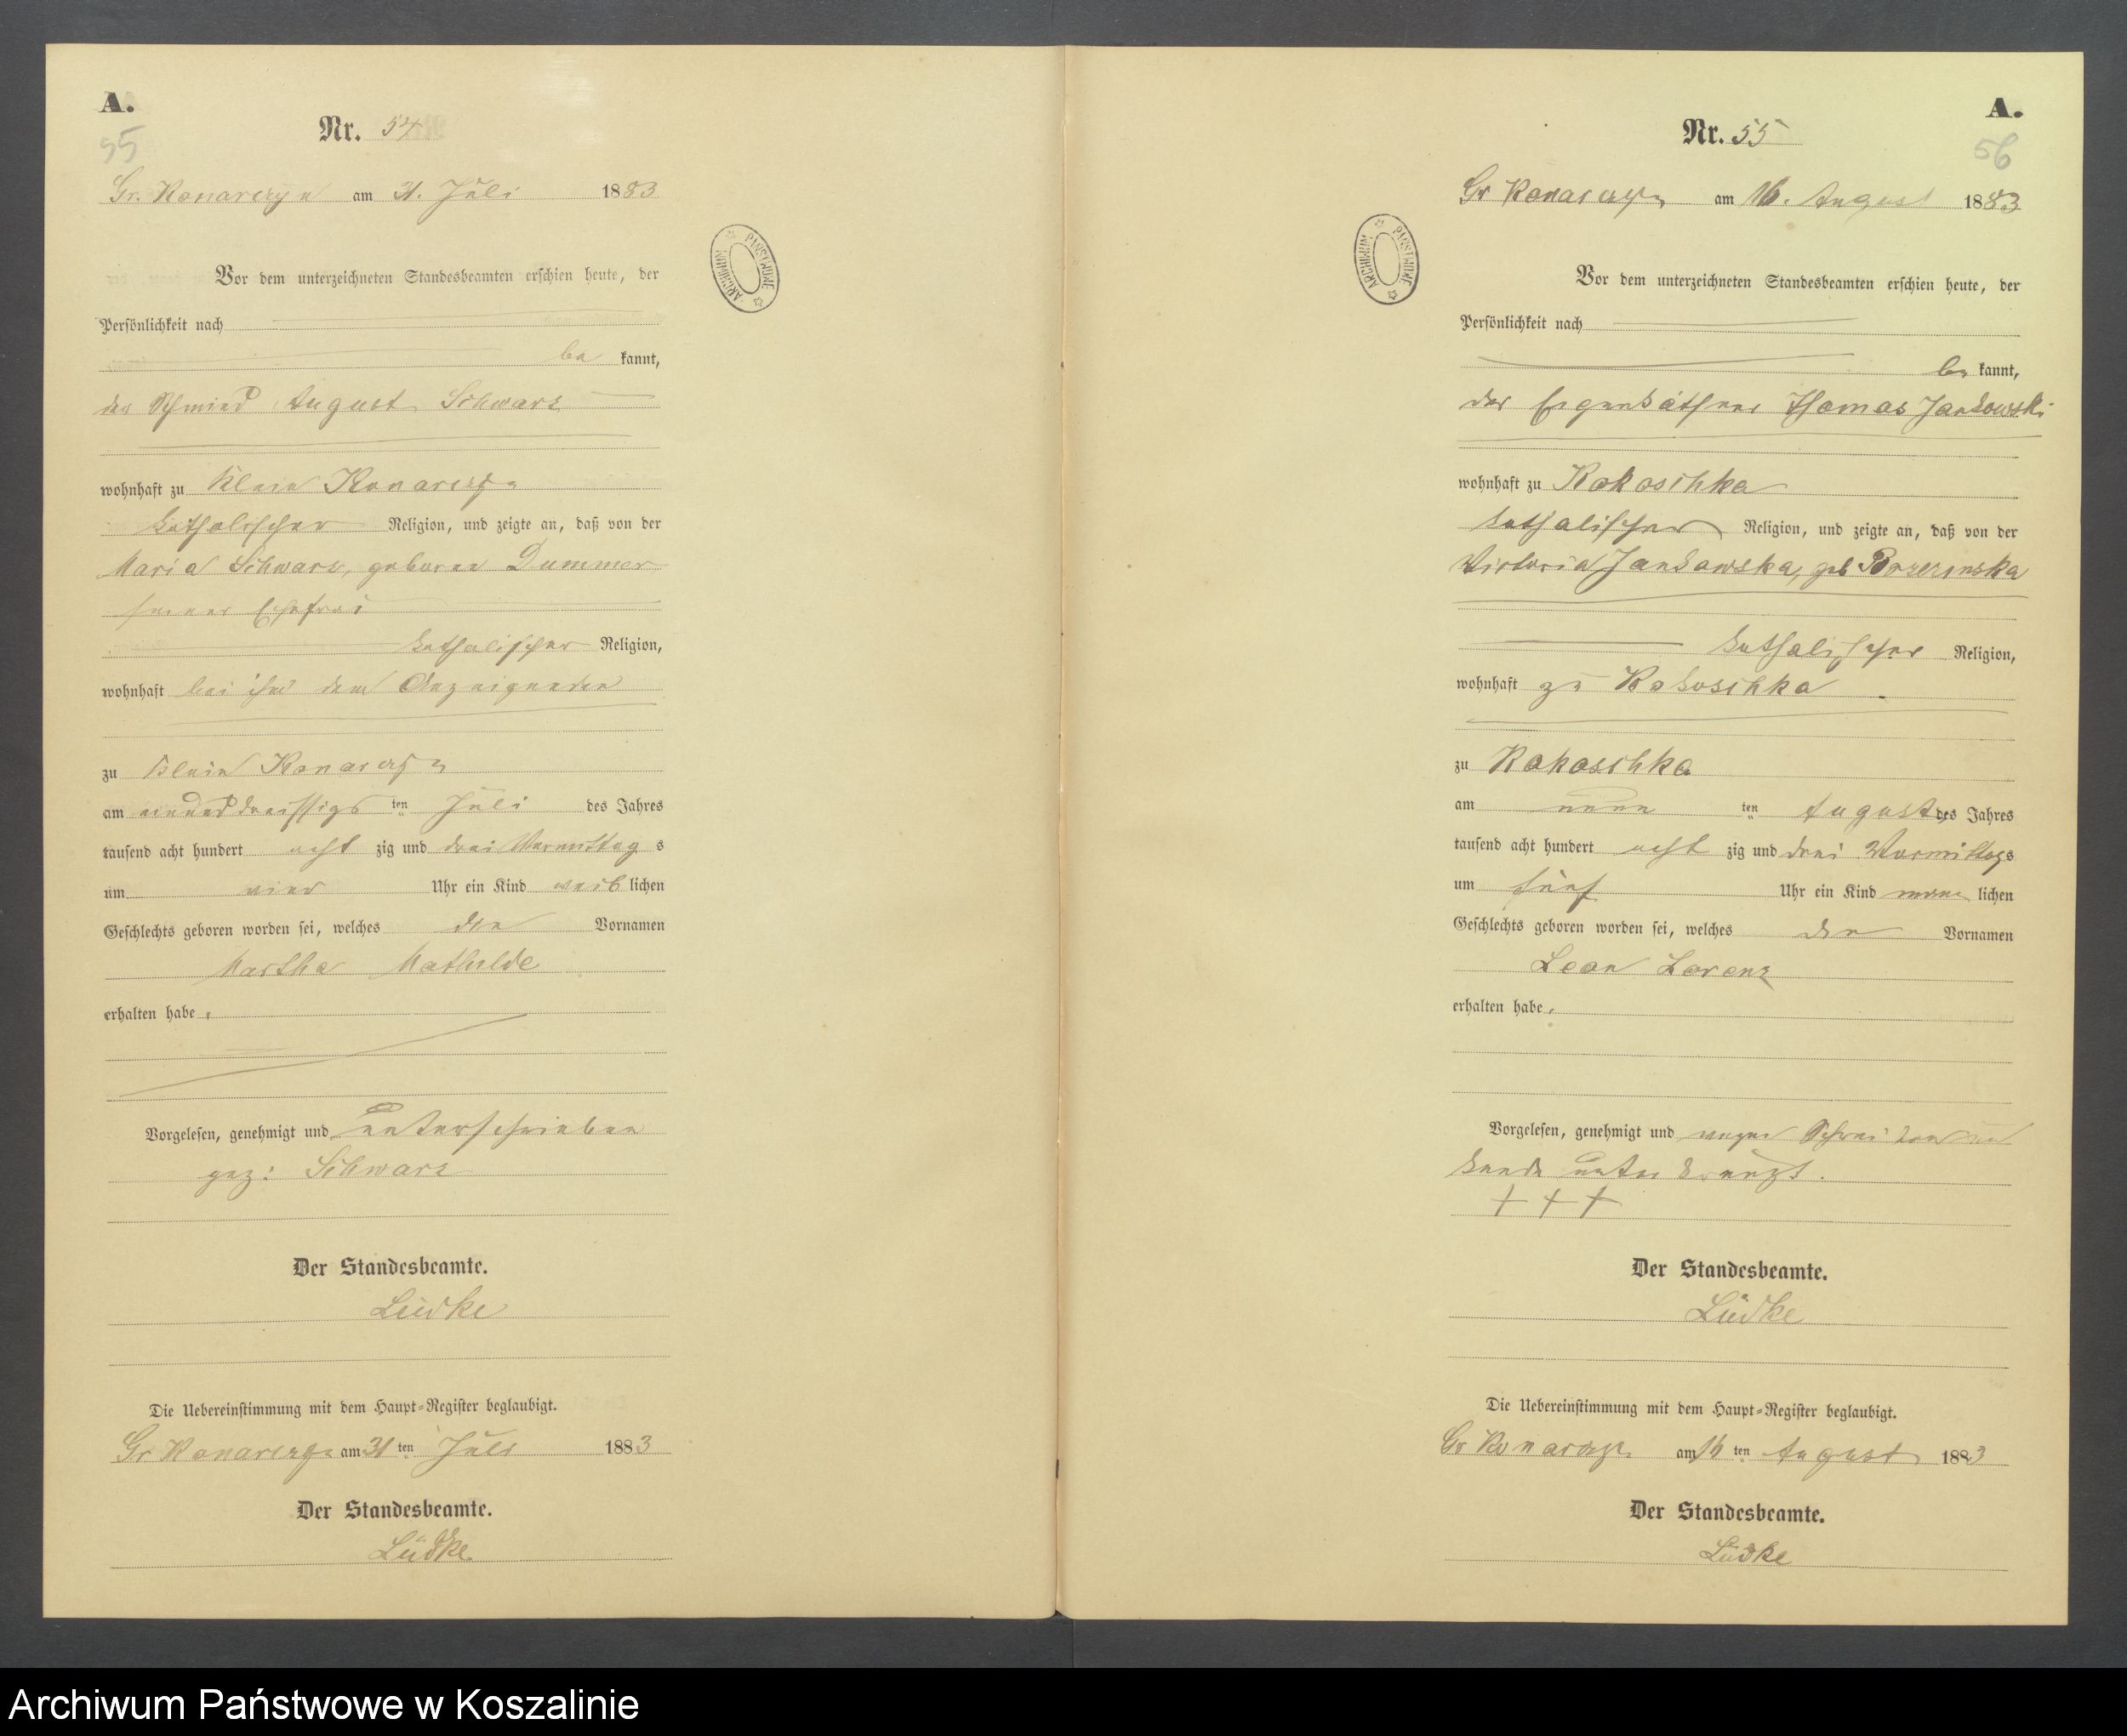 A.
55
Nr. 54
Gr. Konarczyn am 31. Juli 1883
Vor dem unterzeichneten Standesbeamten erschien heute, der
Persönlichkeit nach
be kannt,
der Schmied August Schwarz
wohnhaft zu Klein Konarczyn
katholischer Religion, und zeigte an, daß von der
Maria Schwarz, geborene Dummer
seiner Ehefrau
katholischer Religion,
wohnhaft bei ihm dem Anzeigenden
zu Klein Konarczyn
am einunddreissigs ten Juli des Jahres
tausend acht hundert acht zig und drei Vormittag s
um vier Uhr ein Kind weib lichen
Geschlechts geboren worden sei, welches den Vornamen
Martha Mathilde
erhalten habe.
Vorgelesen, genehmigt und unterschrieben
gez: Schwarz
Der Standesbeamte.
Lüdke
Die Uebereinstimmung mit dem Haupt-Register beglaubigt.
Gr Konarczyn am 31 ten Juli 1883
Der Standesbeamte.
Lüdke
ARCHIWUM PAŃSTWOWE
A.
56
Nr. 55
Gr Konarczyn am 16. August 1883
Vor dem unterzeichneten Standesbeamten erschien heute, der
Persönlichkeit nach
be kannt,
der Eigenkäthner Thomas Jankowski
wohnhaft zu Kokoschka
katholischer Religion, und zeigte an, daß von der
Victoria Jankowska, geb
katholischer Religion,
wohnhaft zu Kokoschka
zu Kokoschka
am neun ten August des Jahres
tausend acht hundert acht zig und drei Vormittags
um fünf Uhr ein Kind männ lichen
Geschlechts geboren worden sei, welches den Vornamen
Leon Lorenz
erhalten habe.
Vorgelesen, genehmigt und wegen Schreibens un
kunde unterkreuzt.
+ + +
Der Standesbeamte.
Lüdke
Die Uebereinstimmung mit dem Haupt-Register beglaubigt.
Gr Konarczyn am 16 ten August 1883
Der Standesbeamte.
Lüdke
ARCHIWUM PAŃSTWOWE
Archiwum Państwowe w Koszalinie